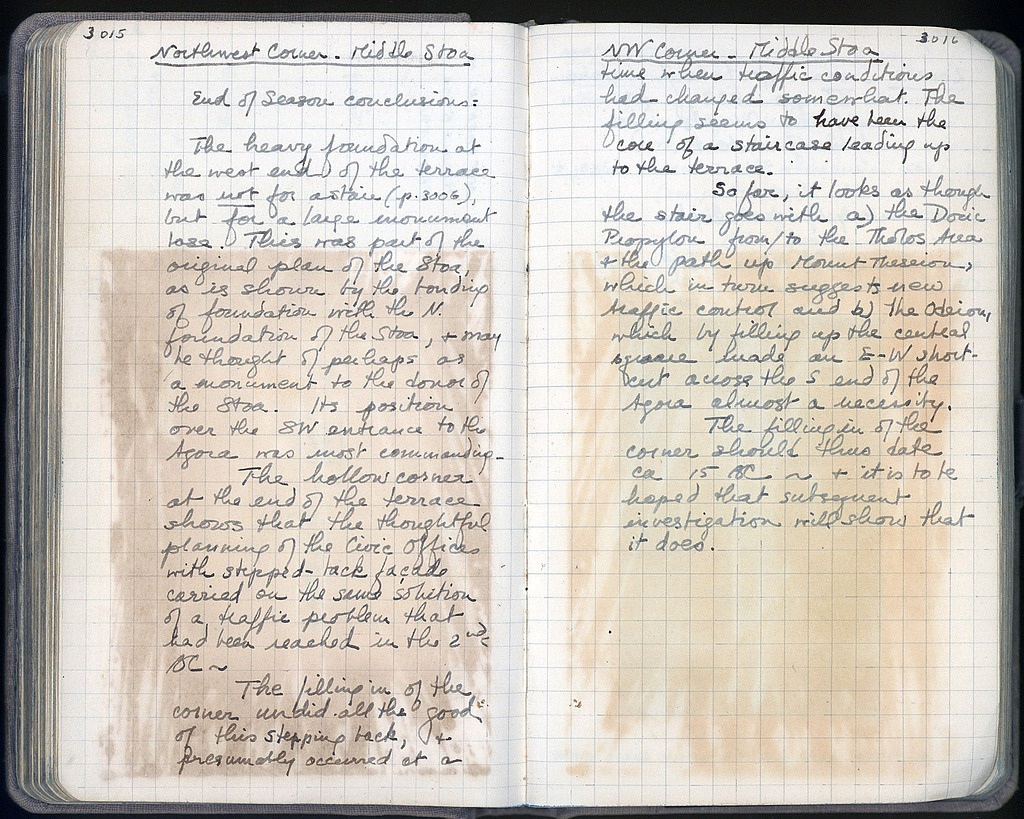 3015
Northwest Corner - Middle Stoa
End of Season conclusions:
The heavy foundation at
the west end of the terrace
was not for a stair (p. 3006),
but for a large monument
base. This was part of the
original plan of the Stoa,
as is shown by the bonding
of foundation with the N.
foundation of the Stoa, + may
be thought of perhaps as
a monument to the donor of
the Stoa. Its position
over the SW entrance to the
Agora was most commanding -
The hollow corner
at the end of the terrace
shows that the thoughtful
planning of the Civic Offices
with stepped-back façade
carried on the same solution
of a traffic problem that
had been reached in the 2nd c
BC ~
The filling in of the
corner undid all the good
of this stepping back, +
presumably occurred at a
3016
NW Corner - Middle Stoa
time when traffic conditions
had changed somewhat. The
filling seems to have been the
core of a staircase leading up
to the terrace.
So far, it looks as though
the stair goes with a) the Doric
Propylon from/to the Tholos Area
+ the path up Mount Theseion,
which in turn suggests new
traffic control and b) the Odeion,
which by filling up the central
square made an E-W short-
cut across the S end of the
Agora almost a necessity.
The filling in of the
corner should thus date
ca 15 BC ~ + it is to be
hoped that subsequent
investigation will show that
it does.